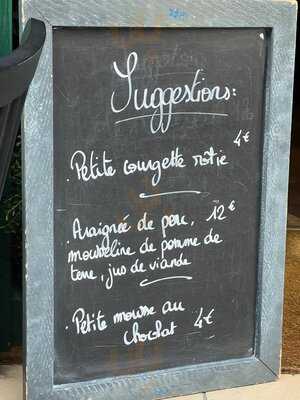 Suggestions:
. Petite courgette rôtie 4€
. Araignée de porc, 12€
mousseline de pomme de
terre, jus de viande
. Petite mousse au
chocolat 4€